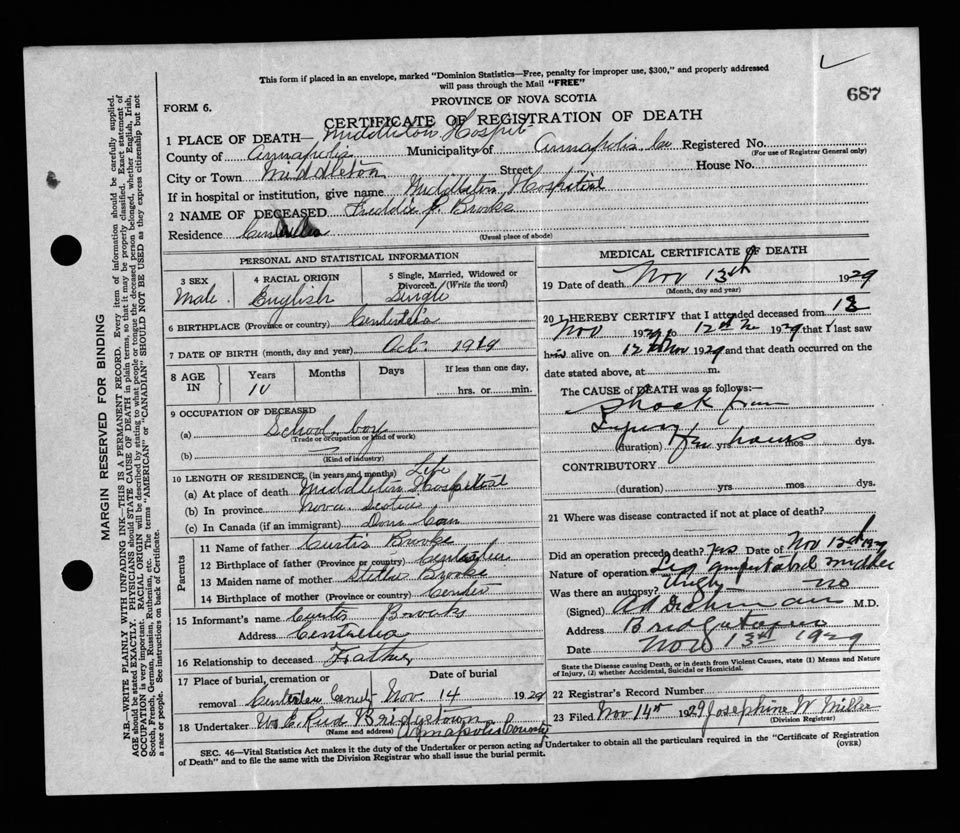 This form if placed in an envelope, marked "Dominion Statistics—Free, penalty for improper use, $300," and properly addressed
will pass through the Mail "FREE"
687
PROVINCE OF NOVA SCOTIA
FORM 6.
CERTIFICATE OF REGISTRATION OF DEATH
1 PLACE OF DEATH— Middleton Hospit
County of Annapolis Municipality of Annapolis Co Registered No.
(For use of Registrar General only)
City or Town Middleton Street House No.
If in hospital or institution, give name Middleton Hospital
2 NAME OF DECEASED Freddie J. Brooks
Residence
(Usual place of abode)
MARGIN RESERVED FOR BINDING
N.B.—WRITE PLAINLY WITH UNFADING INK—THIS IS A PERMANENT RECORD. Every item of information should be carefully supplied.
AGE should be stated EXACTLY. PHYSICIANS should STATE CAUSE OF DEATH in plain terms, so that it may be properly classified. Exact statement of
OCCUPATION is very important. RACIAL ORIGIN will be described by stating to what people or tongue the deceased person belonged, whether English, Irish,
Scotch, French, German, Russian, Ruthenian, etc. The terms "AMERICAN" or "CANADIAN" SHOULD NOT BE USED as they express citizenship but not
a race or people. See instructions on back of Certificate.
PERSONAL AND STATISTICAL INFORMATION
3 SEX
Male.
4 RACIAL ORIGIN
English
5 Single, Married, Widowed or
Divorced. (Write the word)
Single
6 BIRTHPLACE (Province or country)
7 DATE OF BIRTH (month, day and year) Oct. 1919
8 AGE
IN
Years
10
Months
Days
If less than one day,
hrs. or min.
9 OCCUPATION OF DECEASED
(a) School boy
(Trade or occupation or kind of work)
(b)
(Kind of industry)
10 LENGTH OF RESIDENCE (in years and months) Life
(a) At place of death Middleton Hospital
(b) In province Nova Scotia
(c) In Canada (if an immigrant) Can
Parents
11 Name of father Curtis Brooks
12 Birthplace of father (Province or country)
13 Maiden name of mother Stella Brooks
14 Birthplace of mother (Province or country)
15 Informant's name Curtis Brooks
Address Centrelea
16 Relationship to deceased Father
17 Place of burial, cremation or
removal
Date of burial
Nov. 14 1929
18 Undertaker Bridgetown
(Name and address) Annapolis County
MEDICAL CERTIFICATE OF DEATH
19 Date of death Nov 13th 1929
(Month, day and year)
20 I HEREBY CERTIFY that I attended deceased from 12
Nov 1929 to 12th 1929 that I last saw
him alive on 12 Nov 1929 and that death occurred on the
date stated above, at m.
The CAUSE of DEATH was as follows:—
Shock from
Injury
(duration) few hours yrs mos dys.
CONTRIBUTORY
(duration) yrs mos dys.
21 Where was disease contracted if not at place of death?
Did an operation precede death? Yes Date of Nov 13th 1929
Nature of operation Leg amputated middle
thigh
Was there an autopsy? no
(Signed) M.D.
Address Bridgetown
Date Nov 13th 1929
State the Disease causing Death, or in death from Violent Causes, state (1) Means and Nature
of Injury, (2) whether Accidental, Suicidal or Homicidal.
22 Registrar's Record Number
23 Filed Nov 14th 1929 Josephine W Miller
(Division Registrar)
SEC. 46—Vital Statistics Act makes it the duty of the Undertaker or person acting as Undertaker to obtain all the particulars required in the "Certificate of Registration
of Death" and to file the same with the Division Registrar who shall issue the burial permit.
(OVER)